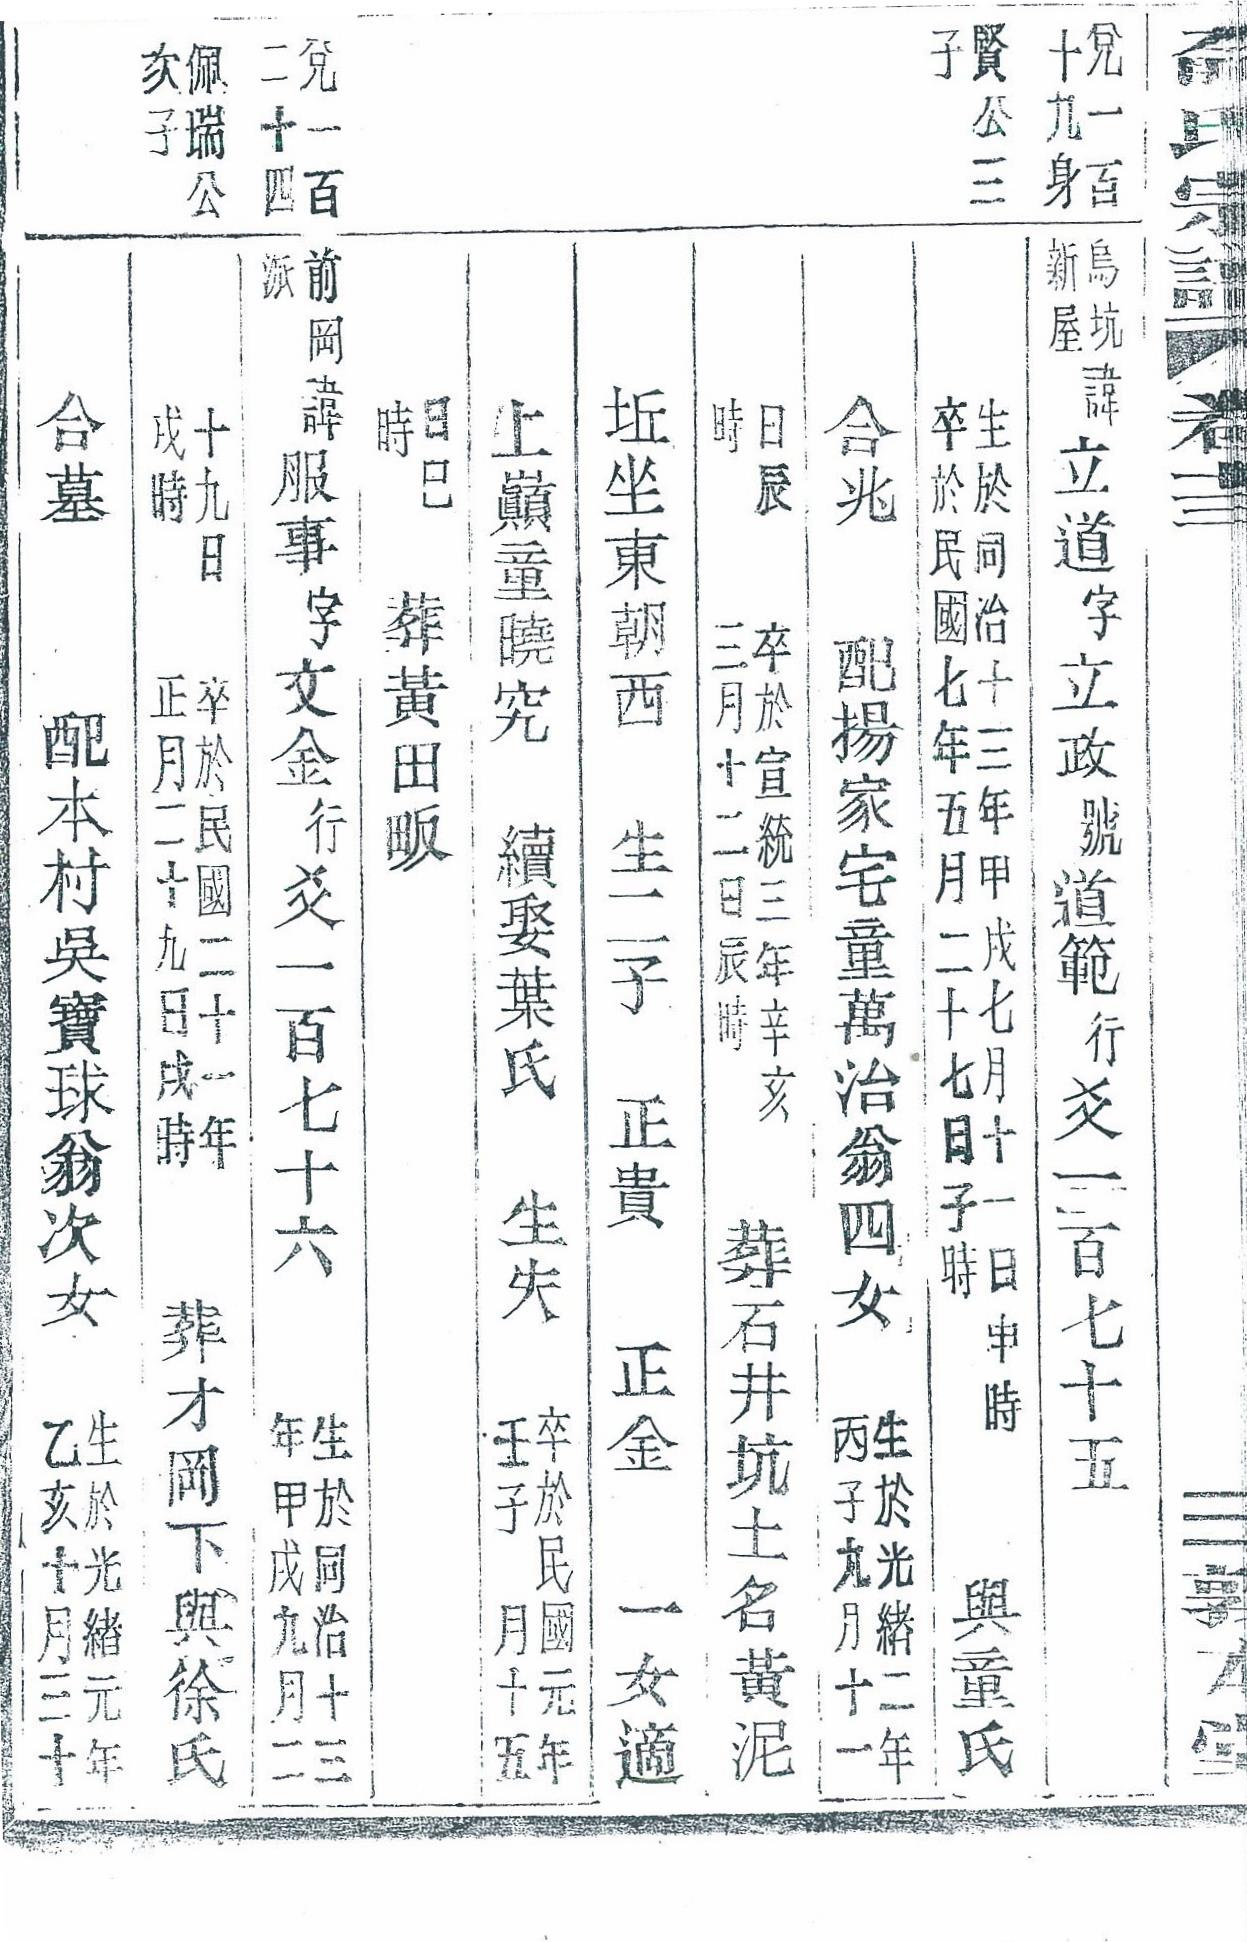 氏宗譜 卷三 敦本堂
兌一百十九身
賢公三子
烏坑新屋 諱立道字立政號道範行爻一百七十五
生於同治十三年甲戌七月十一日申時
卒於民國七年五月二十七日子時 與童氏
合兆 配揚家宅童萬治翁四女 生於光緒二年丙子九月十一
日辰時 卒於宣統三年辛亥三月十二日辰時 葬石井坑土名黃泥
坵坐東朝西 生二子 正貴 正金 一女適
上巔童曉究 續娶葉氏 生失 卒於民國元年壬子 月十五
日巳時 葬黃田畈
兌一百二十四
佩瑞公次子
前岡派 諱服事字文金行爻一百七十六 生於同治十三年甲戌九月二
十九日戌時 卒於民國二十一年正月二十九日戌時 葬才岡下與徐氏
合墓 配本村吳寶球翁次女 生於光緒元年乙亥十月三十